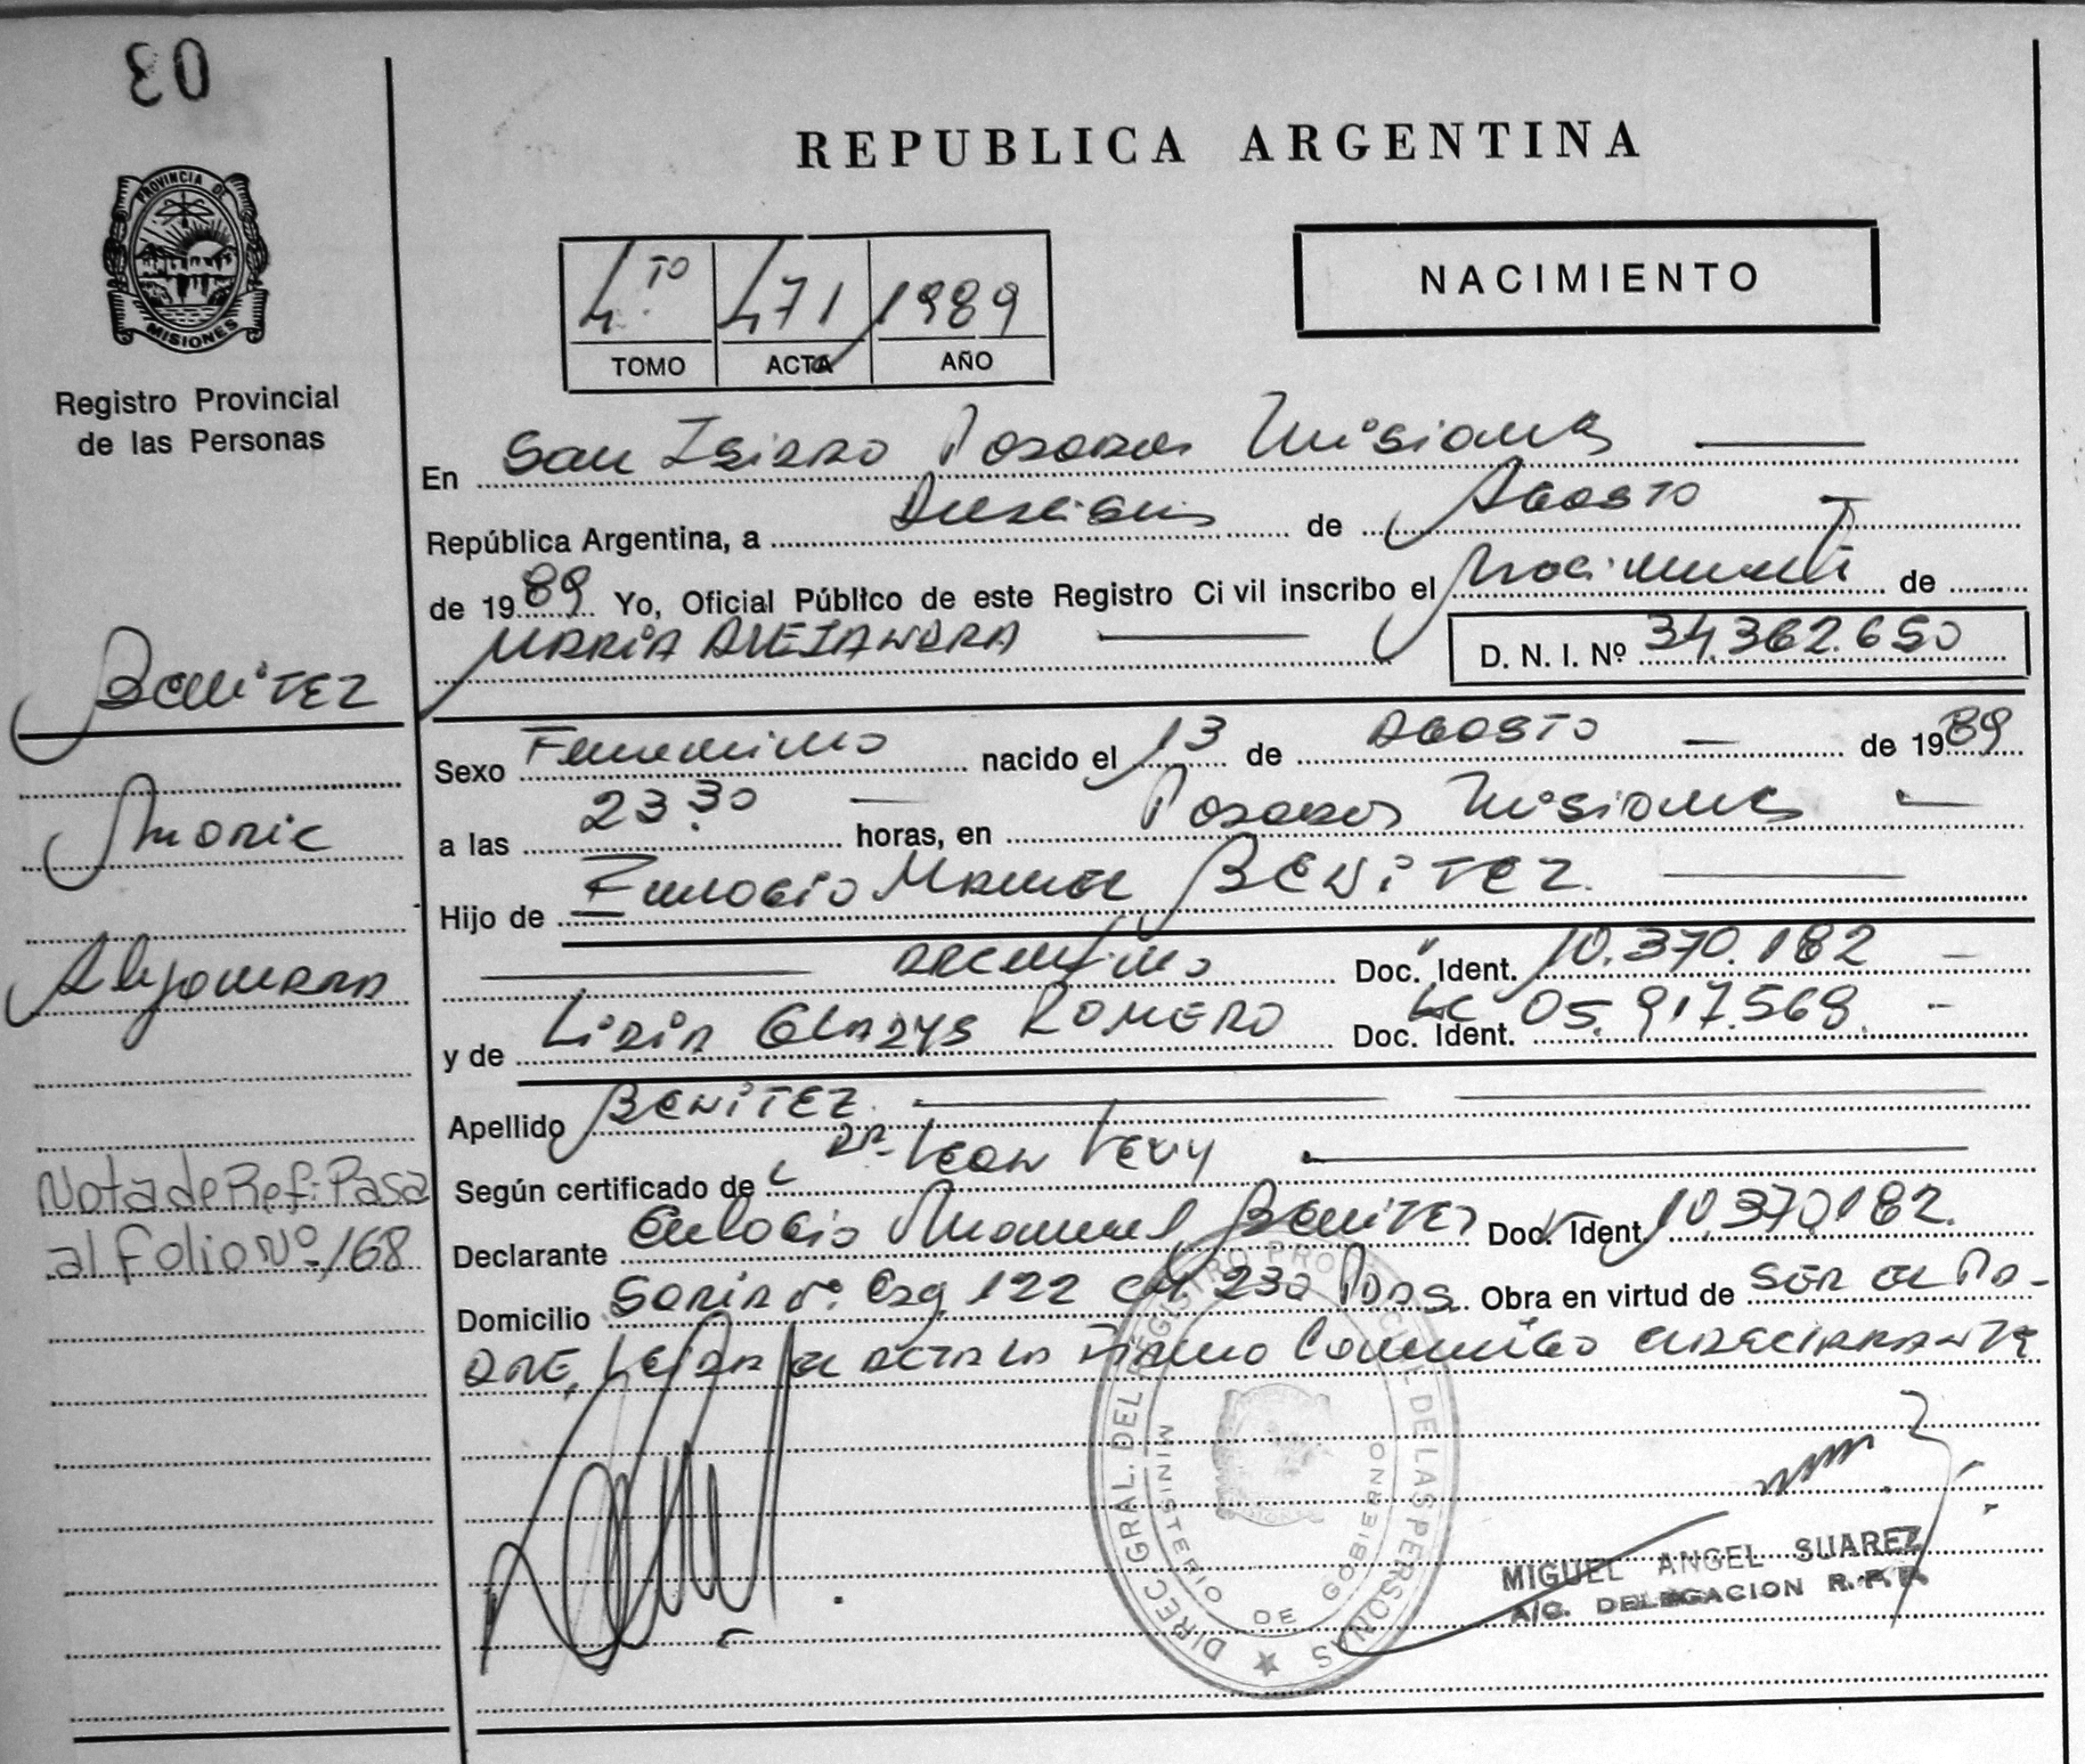 03
PROVINCIA DE
MISIONES
Registro Provincial
de las Personas
REPUBLICA ARGENTINA
4.TO 471 1989
TOMO ACTA AÑO
NACIMIENTO
En San Isidro Posadas Misiones
República Argentina, a de Agosto
de 1989 Yo, Oficial Público de este Registro Civil inscribo el Nacimiento de
MARIA ALEJANDRA D. N. I. Nº 34.362.650
Benitez
Sexo Femenino nacido el 13 de Agosto de 1989
Maria
a las 23.30 horas, en Posadas Misiones
Hijo de Eulogio Manuel BENITEZ
Alejandra
Argentino Doc. Ident. 10.370.182
y de Lidia Gladys ROMERO Doc. Ident. LC 05.917.568
Apellido BENITEZ
Según certificado de Dr. Leon Levy
Nota de Ref: Pasa
al Folio Nº 168
Declarante Eulogio Manuel Benitez Doc. Ident. 10.370.182
Domicilio 122 230 Pdas. Obra en virtud de Ser el Pa-
dre, Leida el acta la Firmo Conmigo el declarante
DIREC GRAL. DEL REGISTRO PROVINCIAL DE LAS PERSONAS
MINISTERIO DE GOBIERNO
MIGUEL ANGEL SUAREZ
A/C. DELEGACION R.P.P.